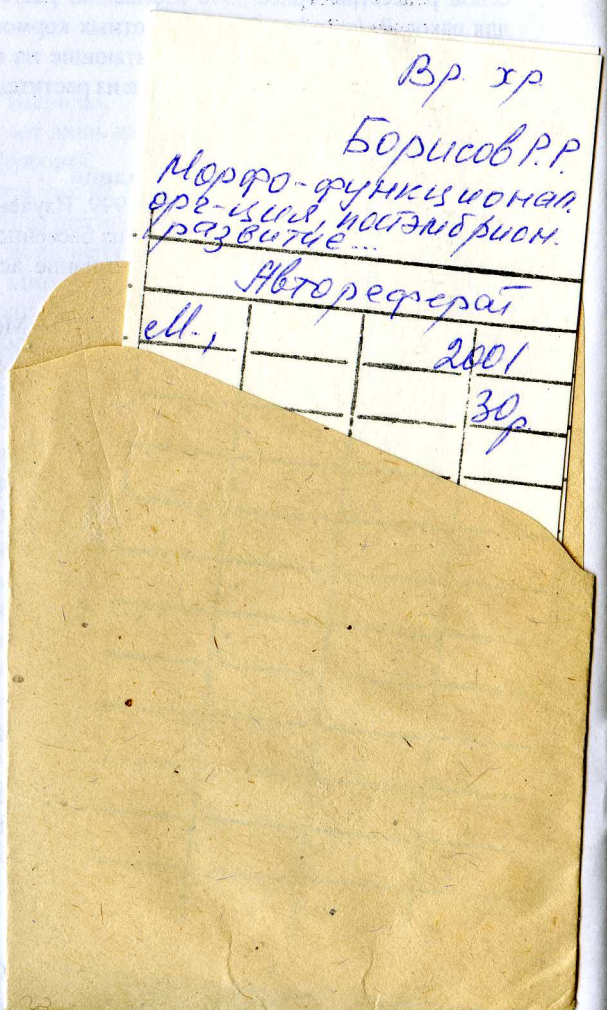 Вр. хр.
Борисов Р.Р.
Морфо-функционал.
орг-ция, постэмбрион.
развитие...
Автореферат
М., 2001
30р